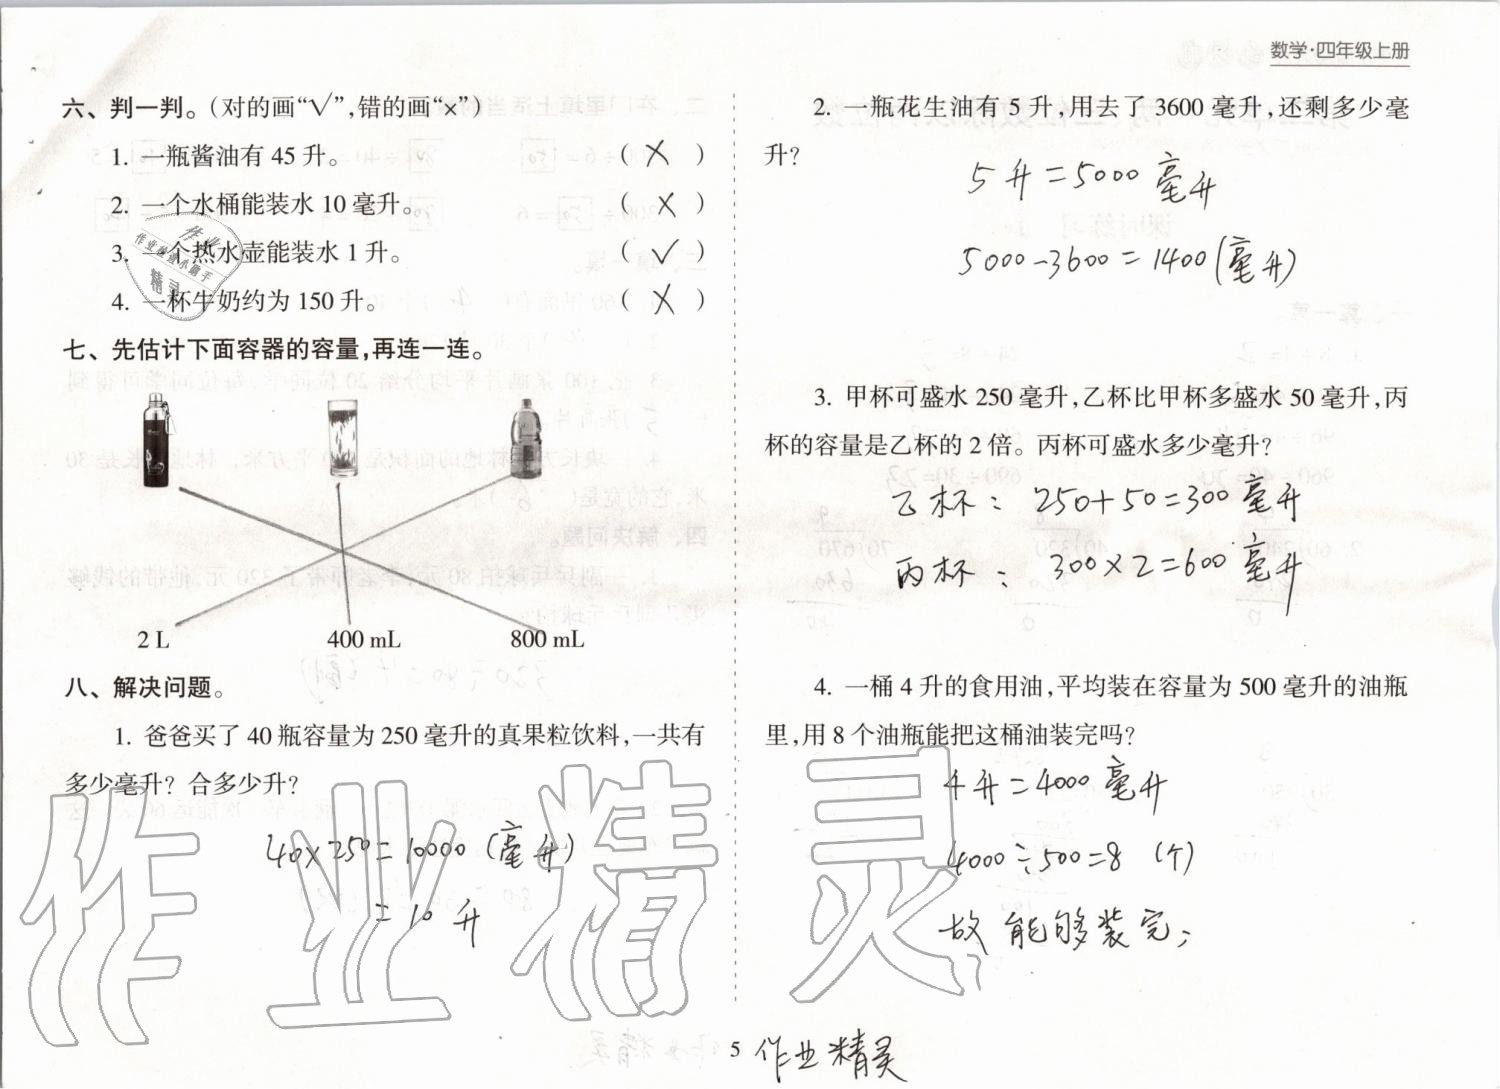 数学·四年级上册
六、判一判。(对的画“√”,错的画“×”)
1. 一瓶酱油有 45 升。 ( × )
2. 一个水桶能装水 10 毫升。 ( × )
3. 一个热水壶能装水 1 升。 ( √ )
4. 一杯牛奶约为 150 升。 ( × )
七、先估计下面容器的容量,再连一连。
2 L 400 mL 800 mL
八、解决问题。
1. 爸爸买了 40 瓶容量为 250 毫升的真果粒饮料,一共有
多少毫升？合多少升？
40×250=10000 (毫升)
=10 升
2. 一瓶花生油有 5 升,用去了 3600 毫升,还剩多少毫
升？
5升=5000毫升
5000-3600=1400(毫升)
3. 甲杯可盛水 250 毫升,乙杯比甲杯多盛水 50 毫升,丙
杯的容量是乙杯的 2 倍。丙杯可盛水多少毫升？
乙杯：250+50=300毫升
丙杯：300×2=600毫升
4. 一桶 4 升的食用油,平均装在容量为 500 毫升的油瓶
里,用 8 个油瓶能把这桶油装完吗？
4升=4000毫升
4000÷500=8 (个)
故能够装完;
作业精灵
作业
作业检查小助手
精灵
5
作业精灵